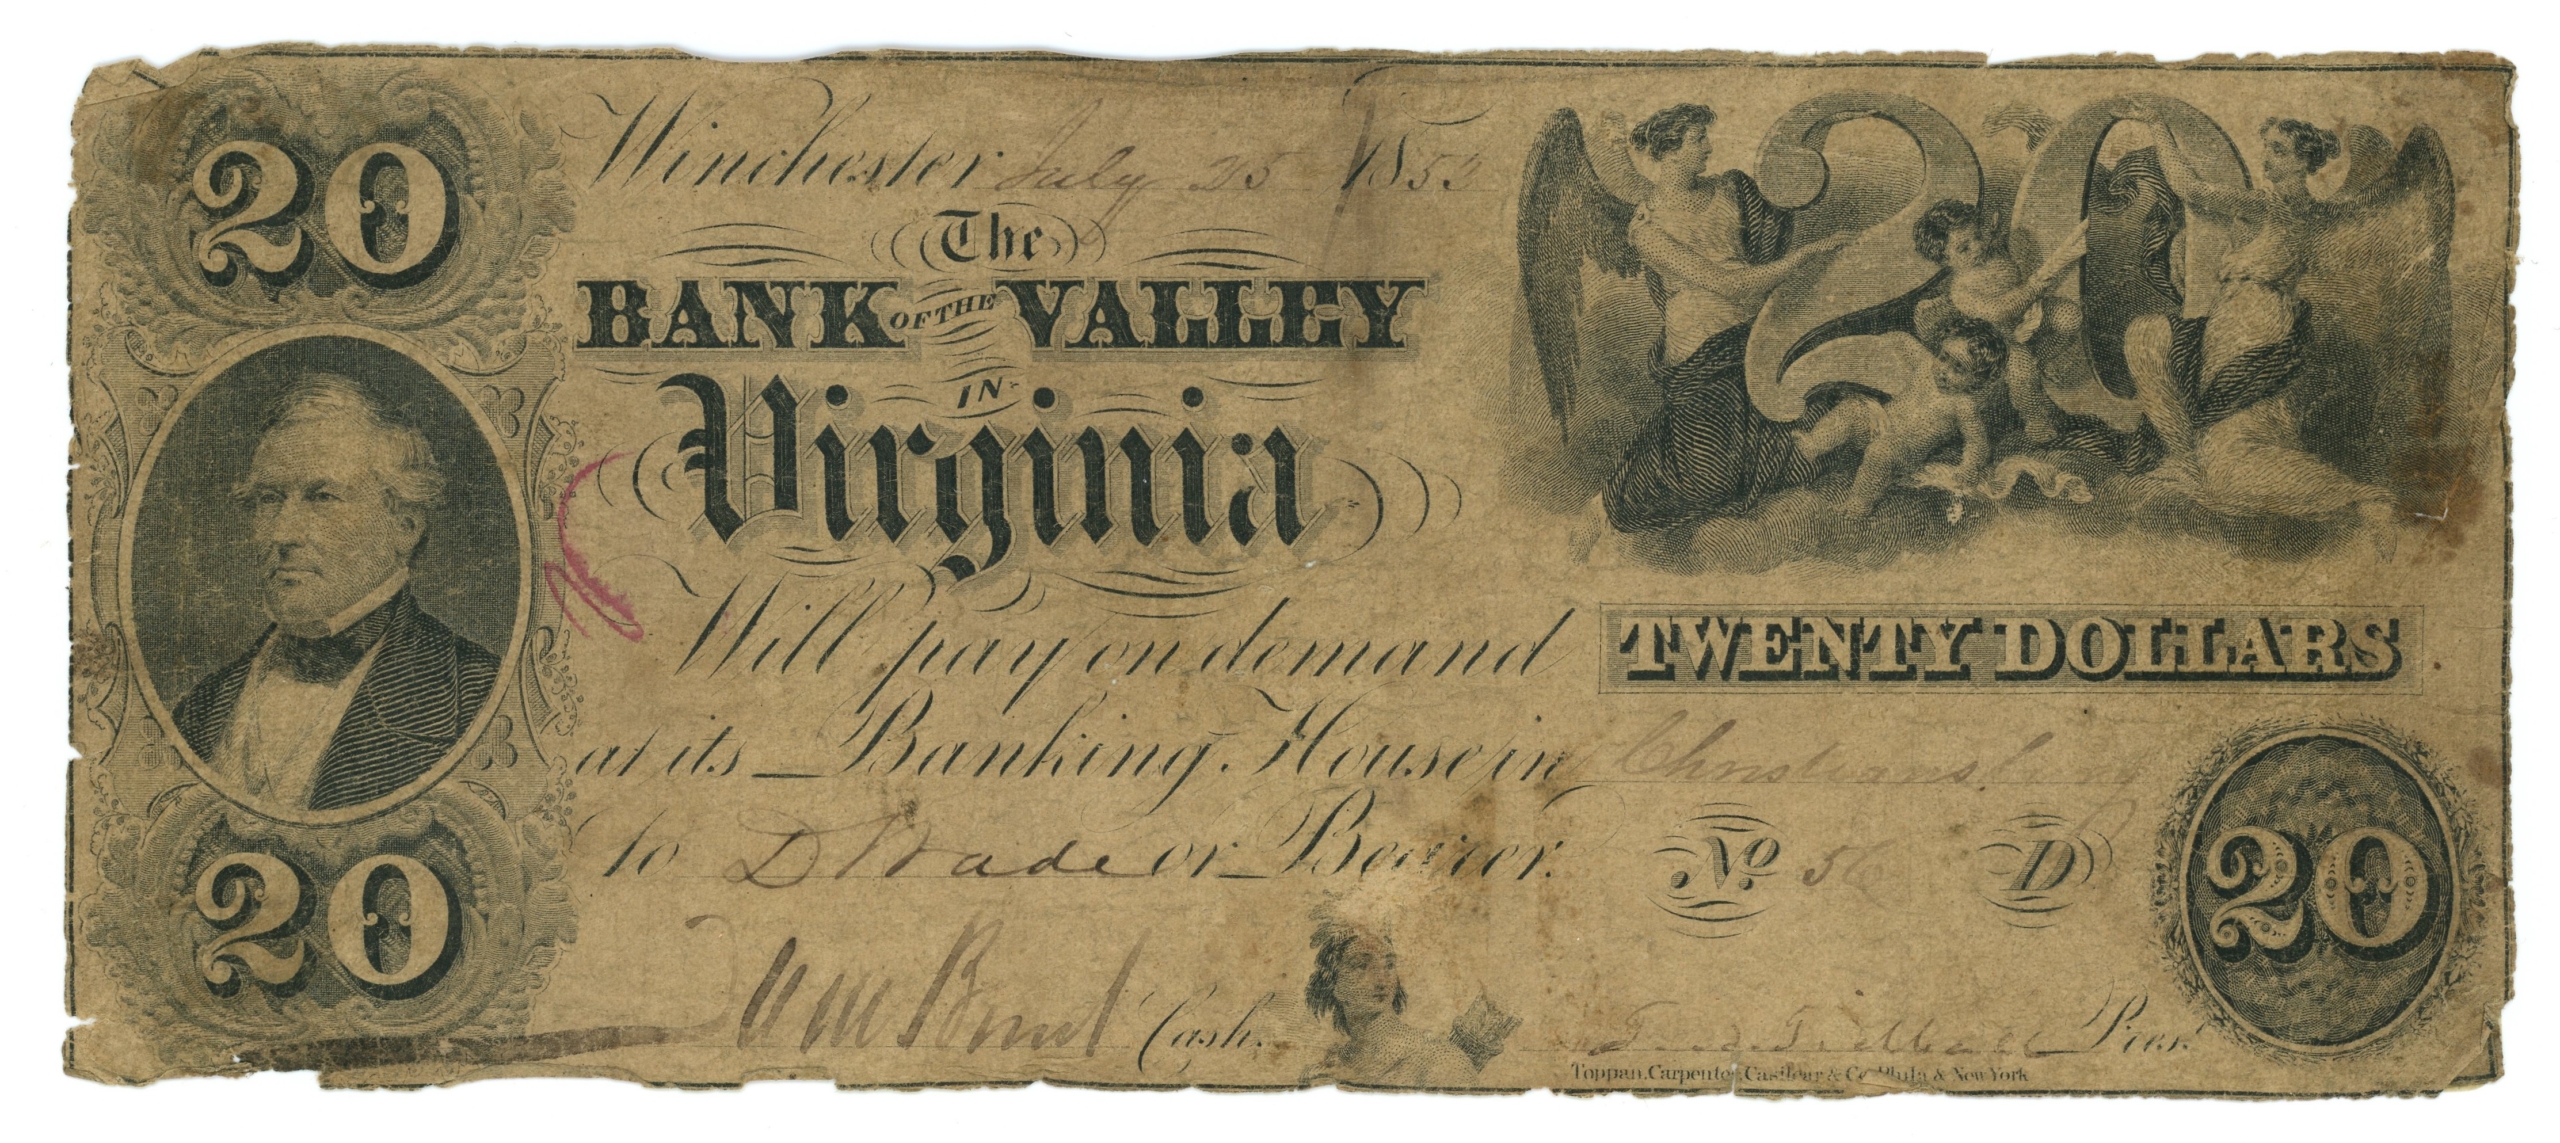 20
Winchester July 25 185
The
BANK OF THE VALLEY
IN
Virginia
Will pay on demand TWENTY DOLLARS
at its Banking House in Christiansburg
to D Wade or Bearer. No. 56 D
20
20
Cash. Pres.
Toppan, Carpenter, Casilear & Co. Phila & New York